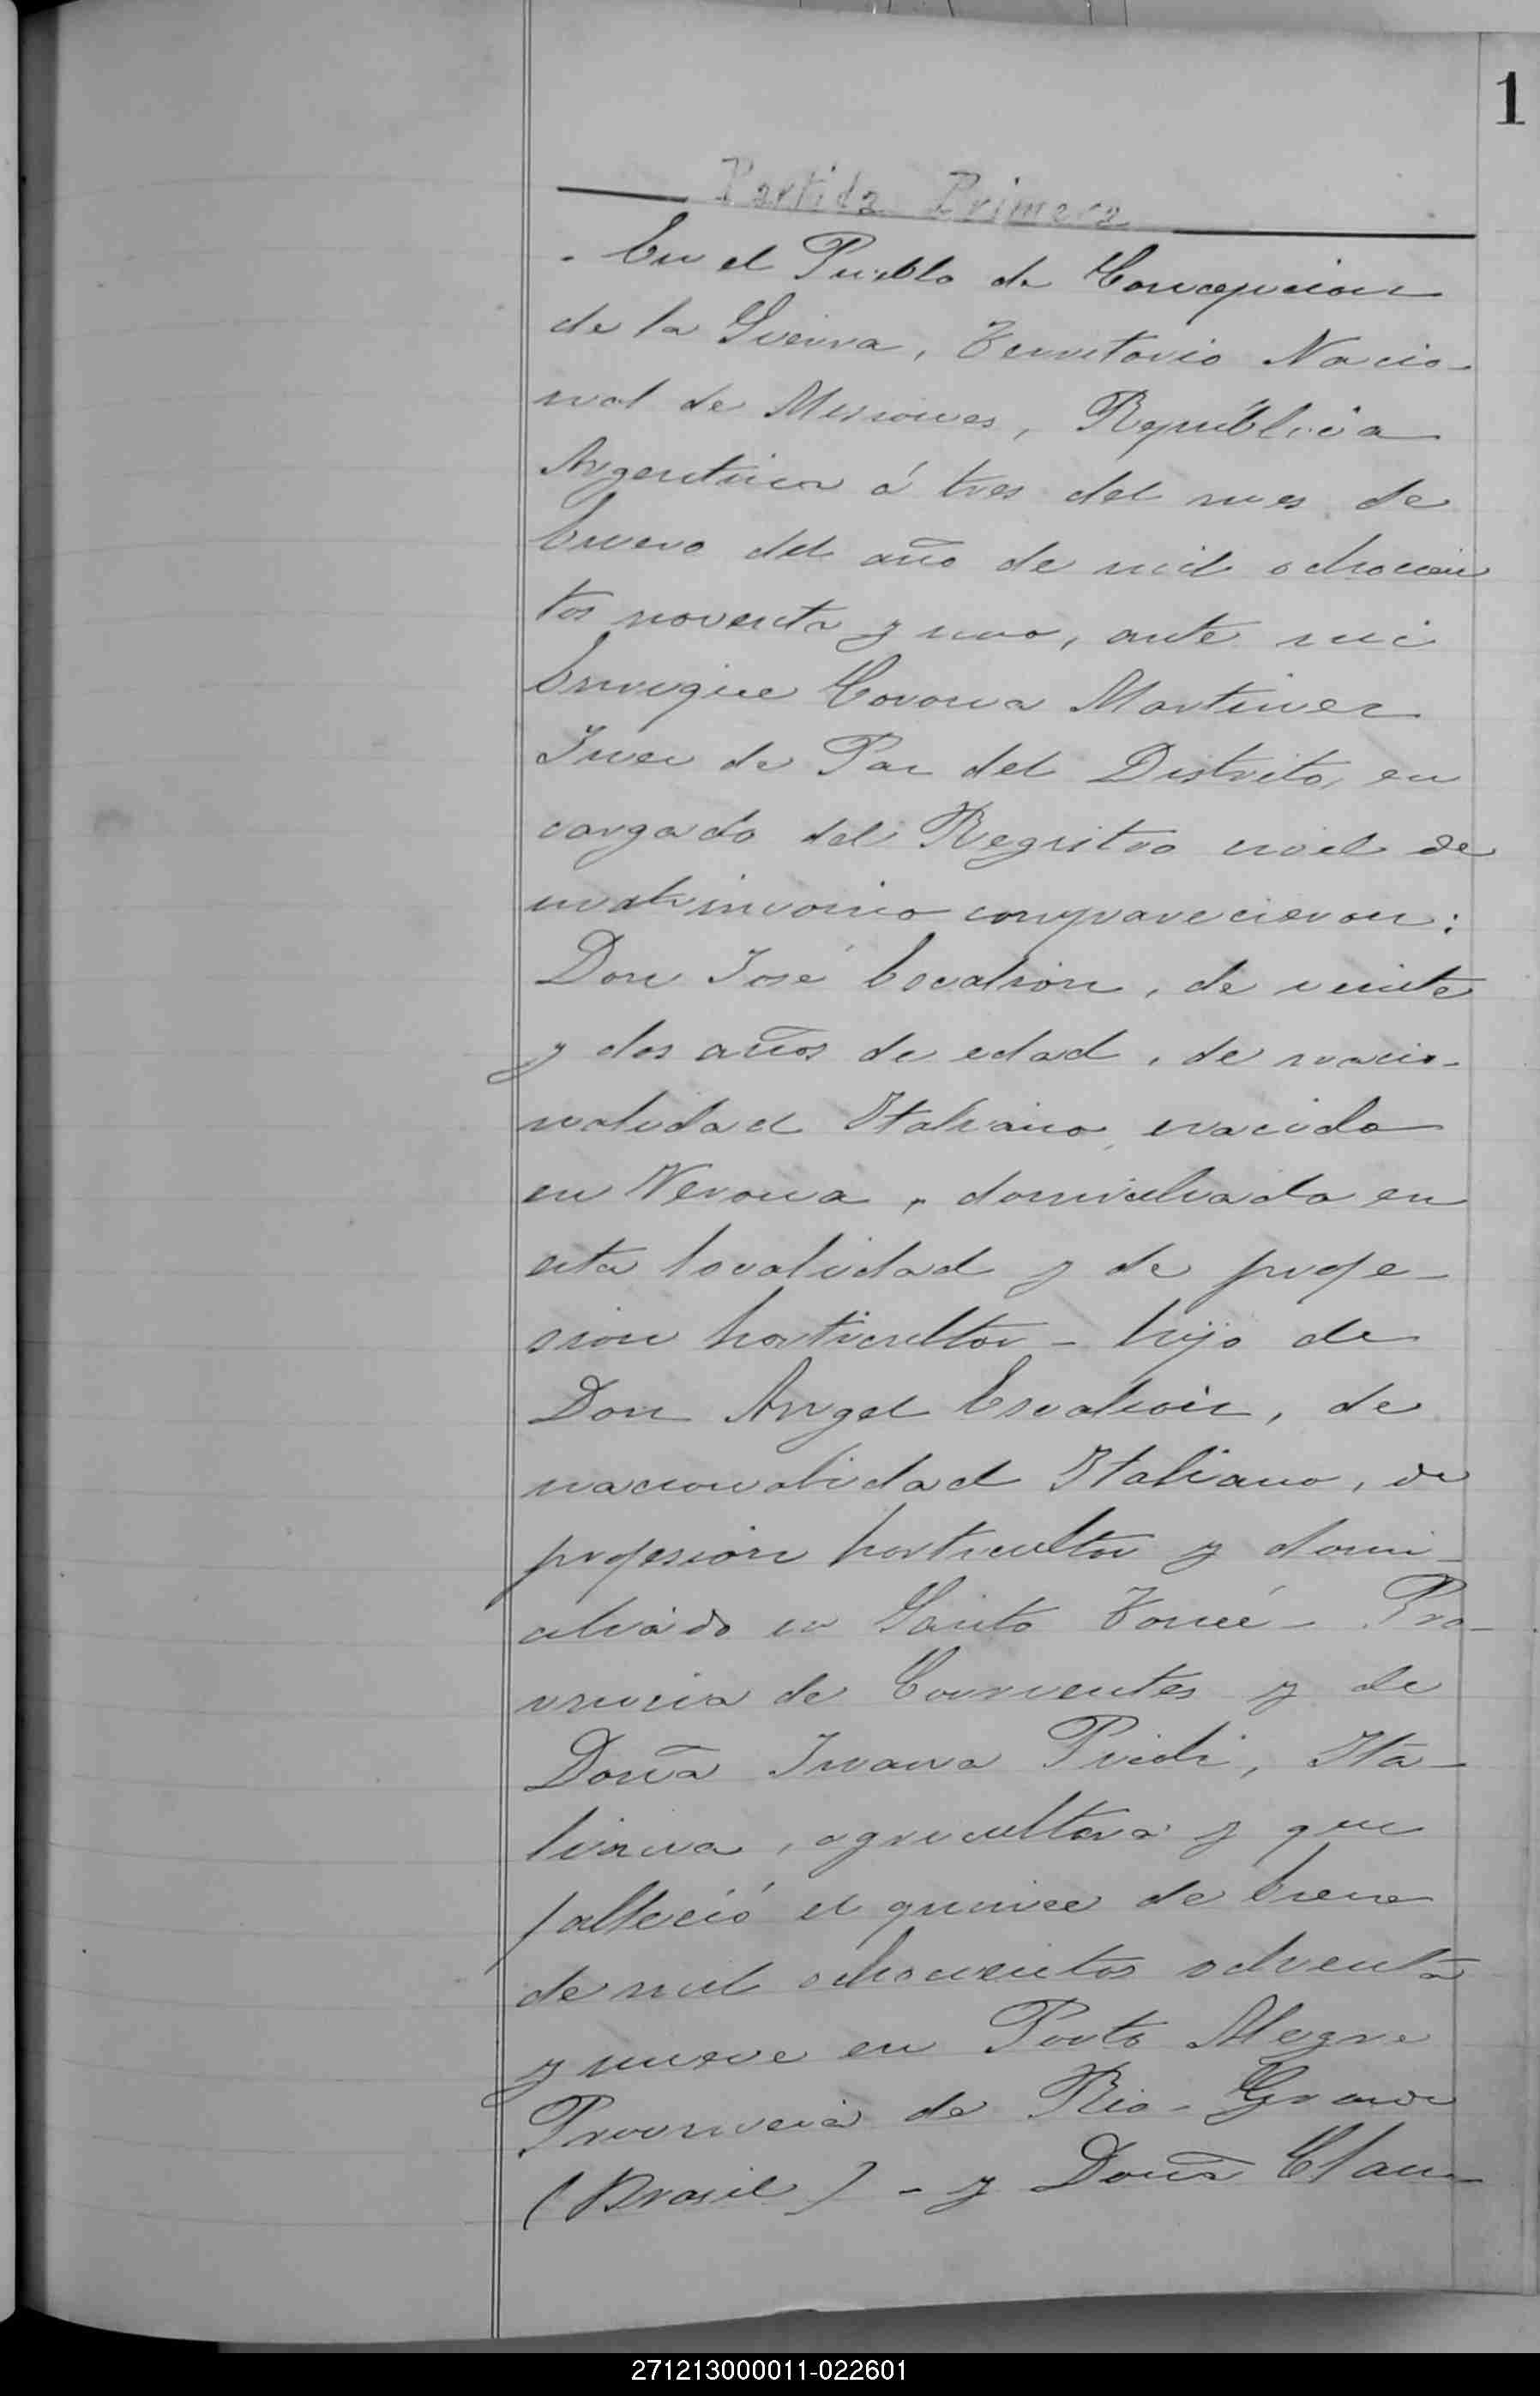 1
Partida Primera
En el Pueblo de Concepcion
de la Sierra, Territorio Nacio-
nal de Misiones, República
Argentina á tres del mes de
Enero del año de mil ochocien
tos noventa y uno, ante mi
Enrique Corona Martinez
Juez de Paz del Distrito, en
cargado del Registro civil de
matrimonio comparecieron:
Don José, de veinte
y dos años de edad, de nacio-
nalidad Italiano, nacido
en Verona, domiciliado en
esta localidad y de profe-
sion horticultor - hijo de
Don Angel, de
nacionalidad Italiano, de
profesion horticultor y domi-
ciliado en Santo Tomé - Pro-
vincia de Corrientes y de
Doña Juana, Ita-
liana, agricultora y que
falleció el quince de Enero
de mil ochocientos ochenta
y nueve en Porto Alegre
Provincia de Rio-Grande
(Brasil) - y Doña Clau-
271213000011-022601